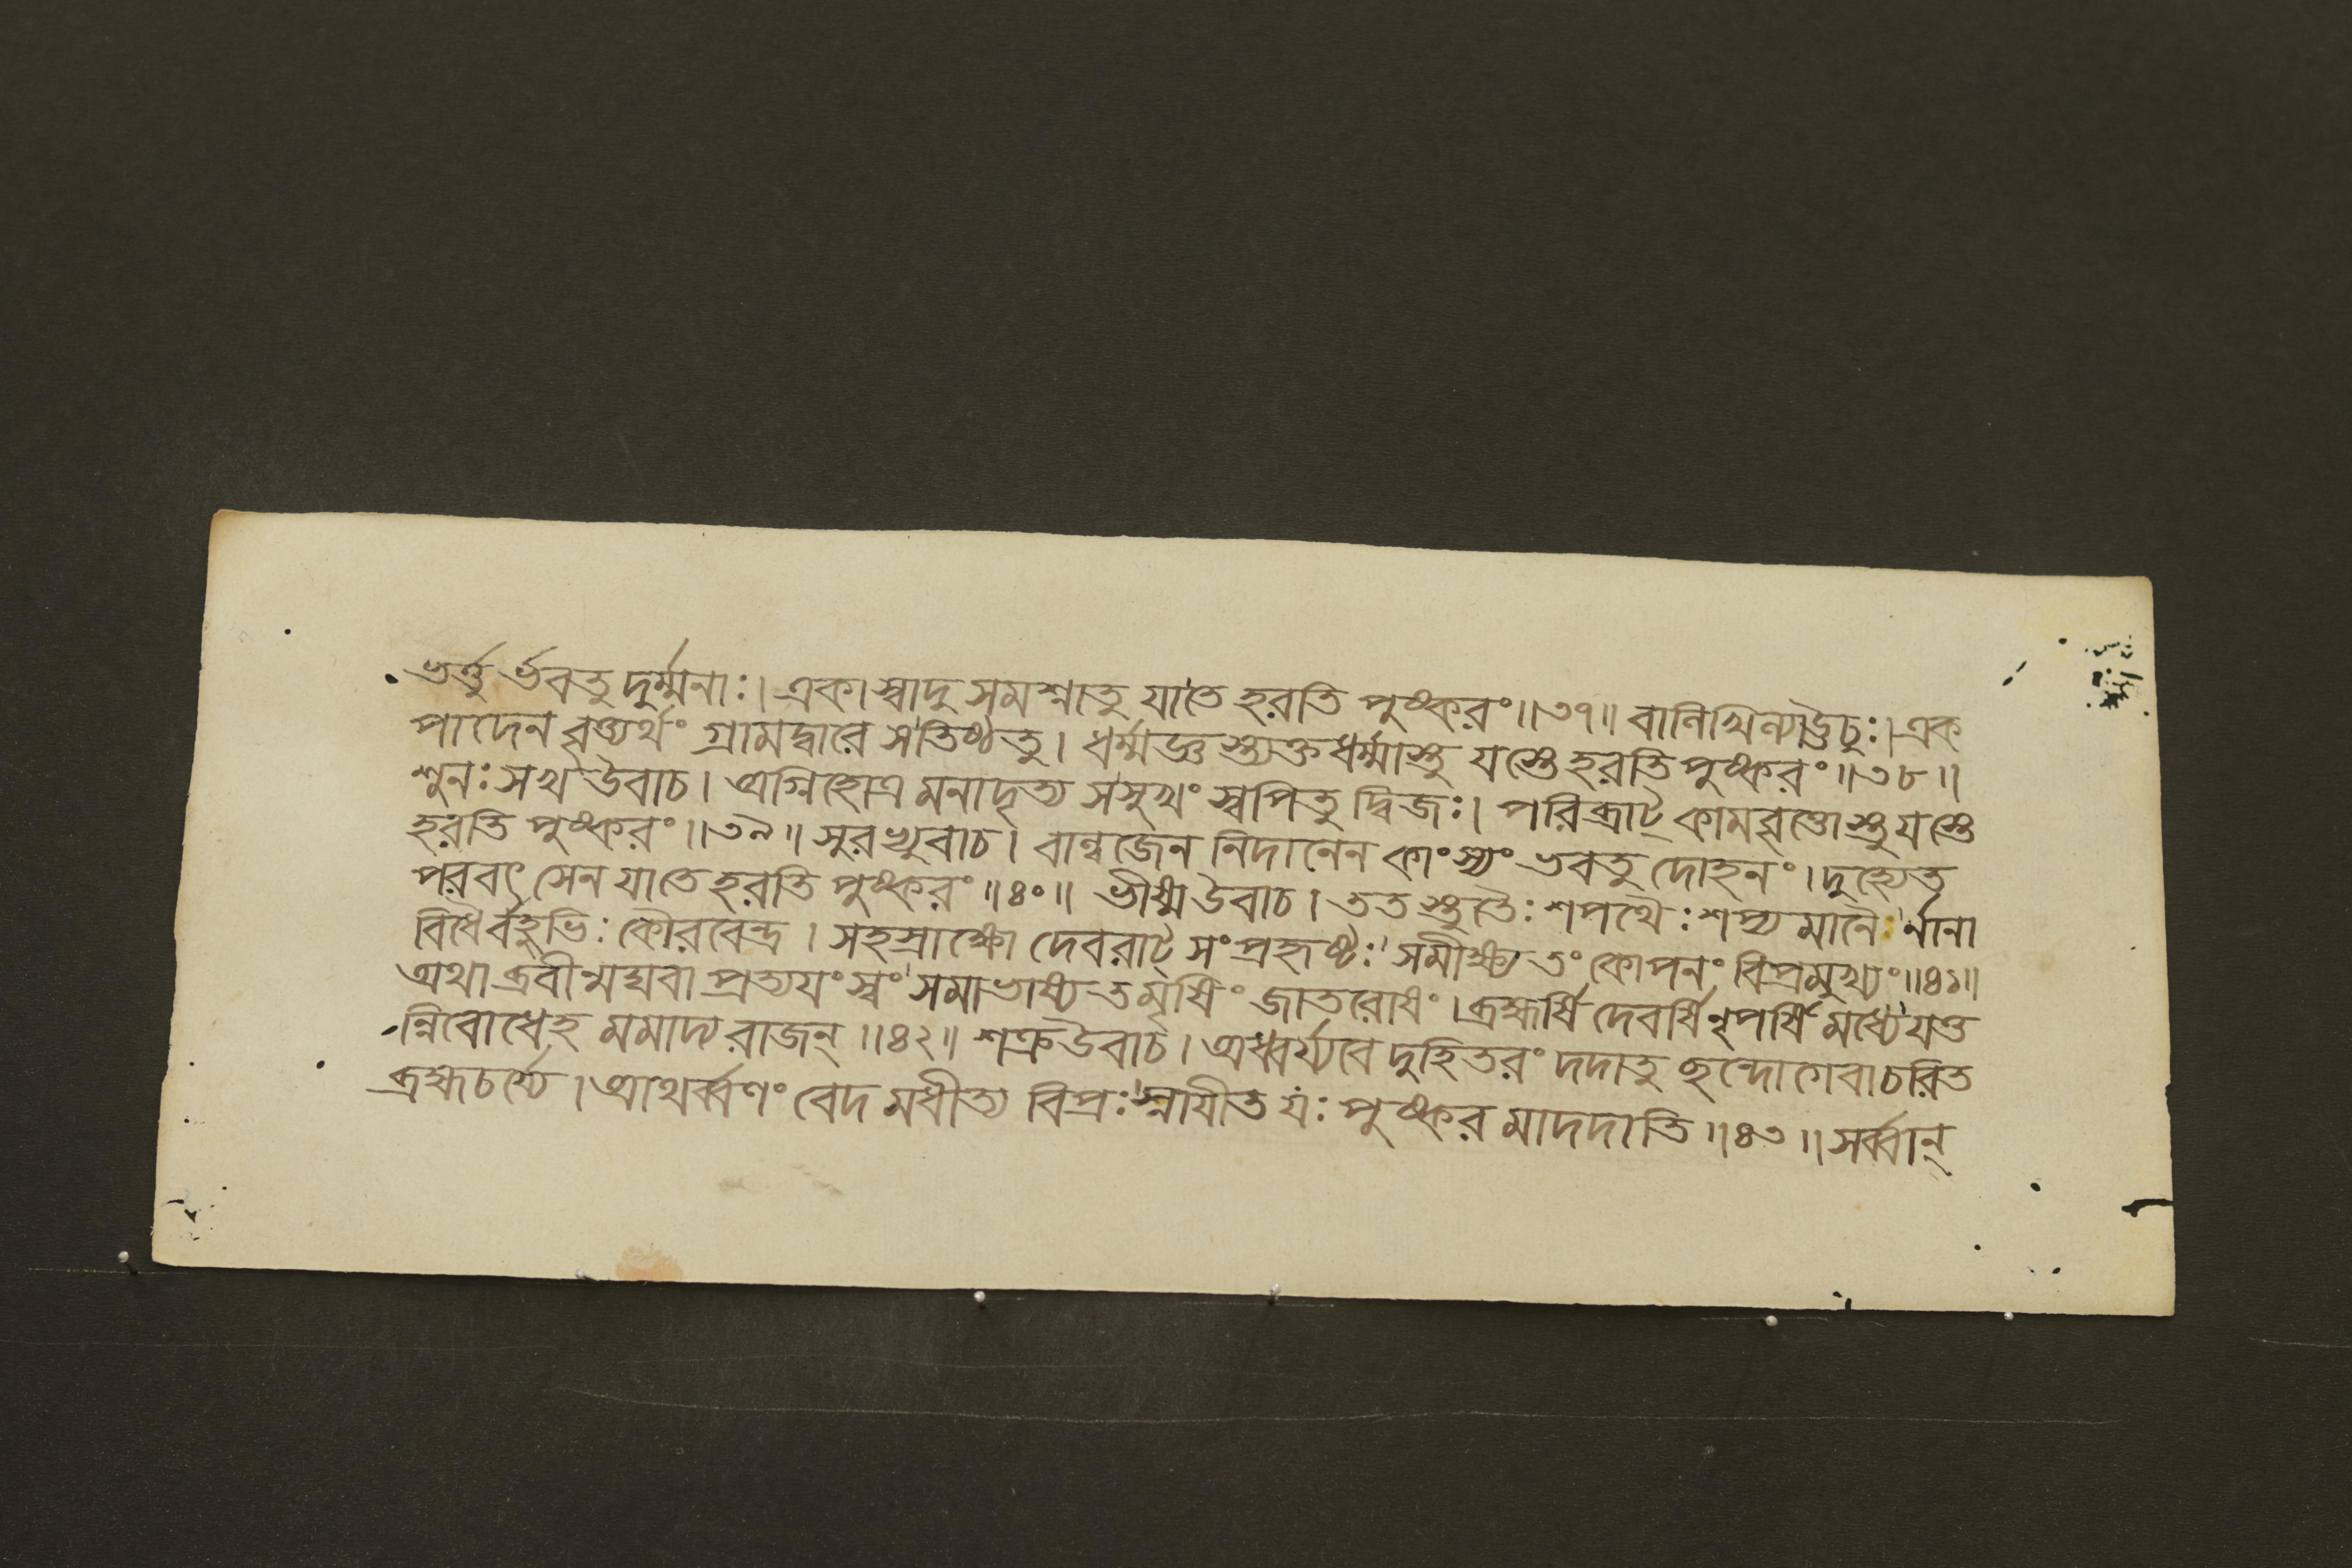 ভর্ত্তুর্ভবতু দুর্ম্মনাঃ। একা স্বাদু সমশ্নাতু যাতে হরতি পুষ্করং॥৩৭॥ বালিখিল্যাঊচুঃ। এক
পাদেন বৃত্ত্যর্থং গ্রামদ্বারে সতিষ্ঠতু। ধর্ম্মজ্ঞস্ত্যক্তধর্ম্মাস্তু যস্তেহরতি পুষ্করং॥৩৮॥
শুনঃসখ উবাচ। অগ্নিহোত্র মনাদৃত্য সসুখং স্বপিতু দ্বিজঃ। পরিব্রাট্ কামবৃত্তোস্তু যস্তে
হরতি পুষ্করং॥৩৯॥ সুরভ্যুবাচ। বাল্বজেন নিদানেন কাংস্যং ভবতু দোহনং। দুহ্যেত
পরবৎসেন যাতে হরতি পুষ্করং॥৪০॥ ভীষ্মউবাচ। ততস্তুতৈঃ শপথৈঃ শপ্যমানৈর্নানা
বিধৈর্বহুভিঃ কৌরবেন্দ্র। সহস্রাক্ষো দেবরাট্ সংপ্রহৃষ্টঃ সমীক্ষ্য তং কোপনং বিপ্রমুখ্যং॥৪১॥
অথাব্রবীন্মঘবা প্রত্যয়ং স্বং সমাভাষ্য তমৃষিং জাতরোষং। ব্রহ্মর্ষি দেবর্ষি নৃপর্ষি মধ্যে যত্ত
ন্নিবোধেহ মমাদ্য রাজন্॥৪২॥ শক্রউবাচ। অধ্বর্য্যবে দুহিতরং দদাতু ছন্দোগেবাচরিত
ব্রহ্মচর্য্যে। আথর্ব্বণং বেদ মধীত্য বিপ্রঃ স্নায়ীত যঃ পুষ্কর মাদদাতি॥৪৩॥ সর্ব্বান্